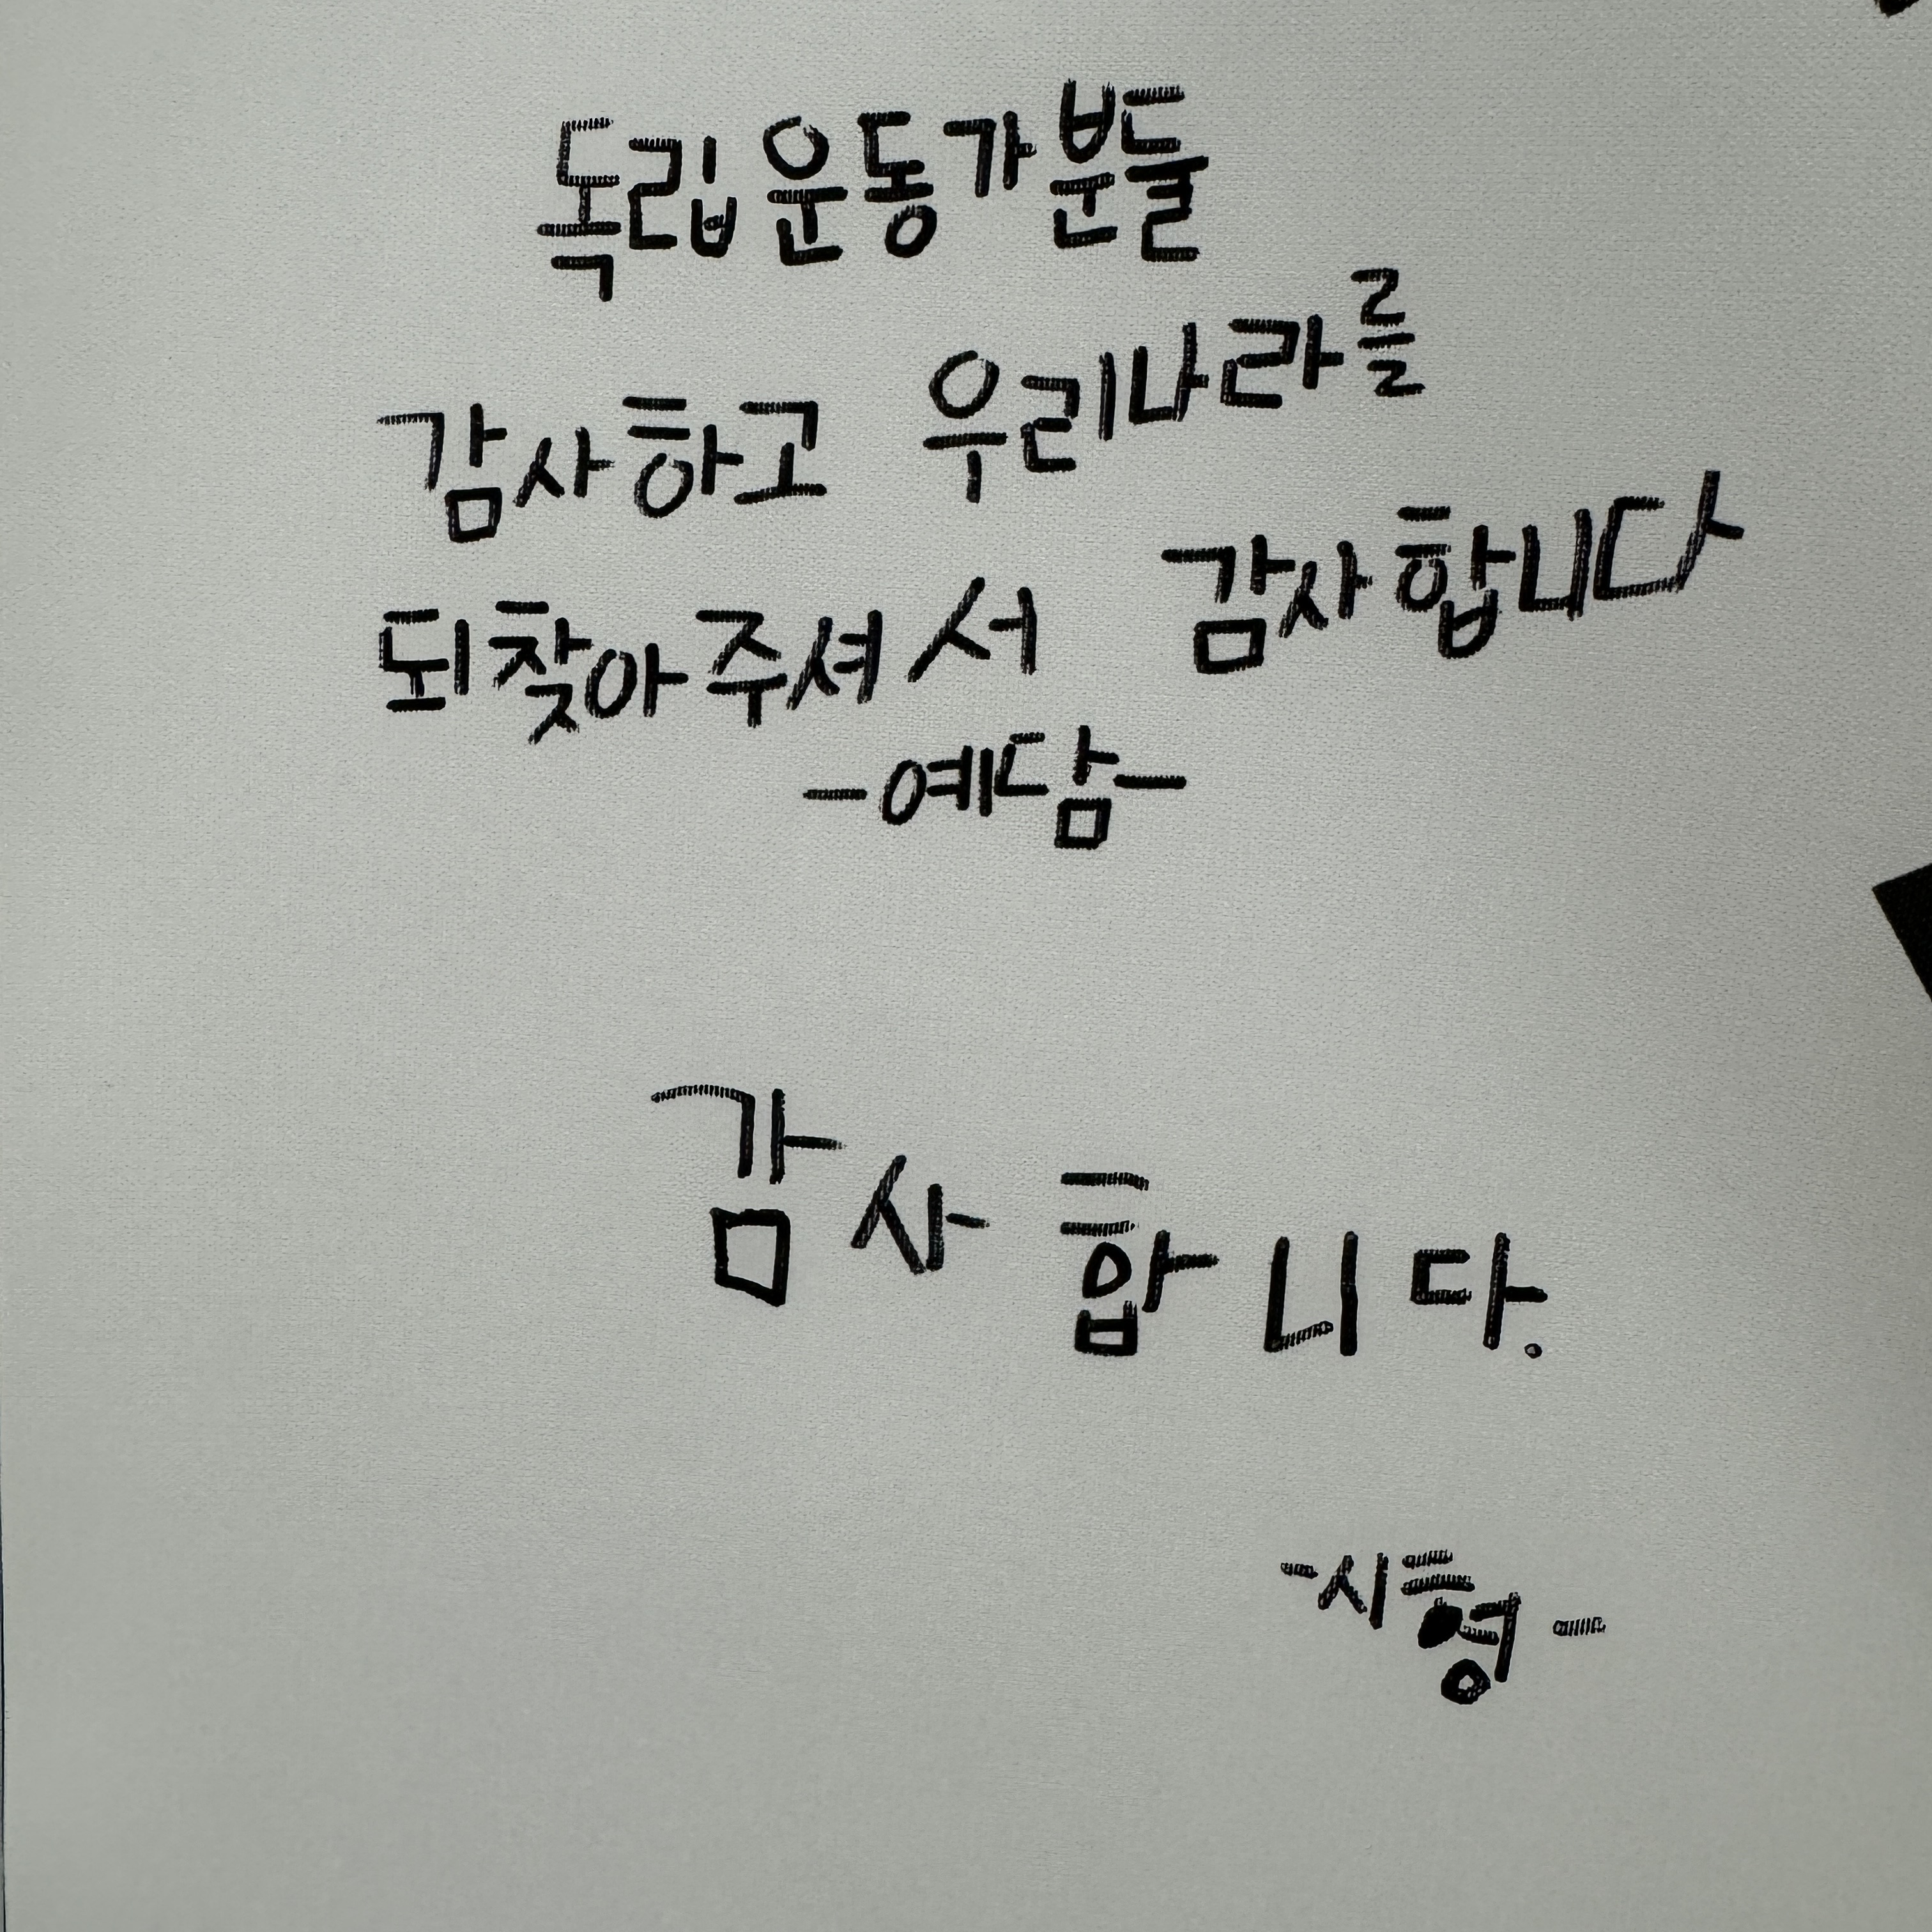 독립운동가분들
감사하고 우리나라를
되찾아주셔서 감사합니다
-예담-
감사합니다.
-시형-